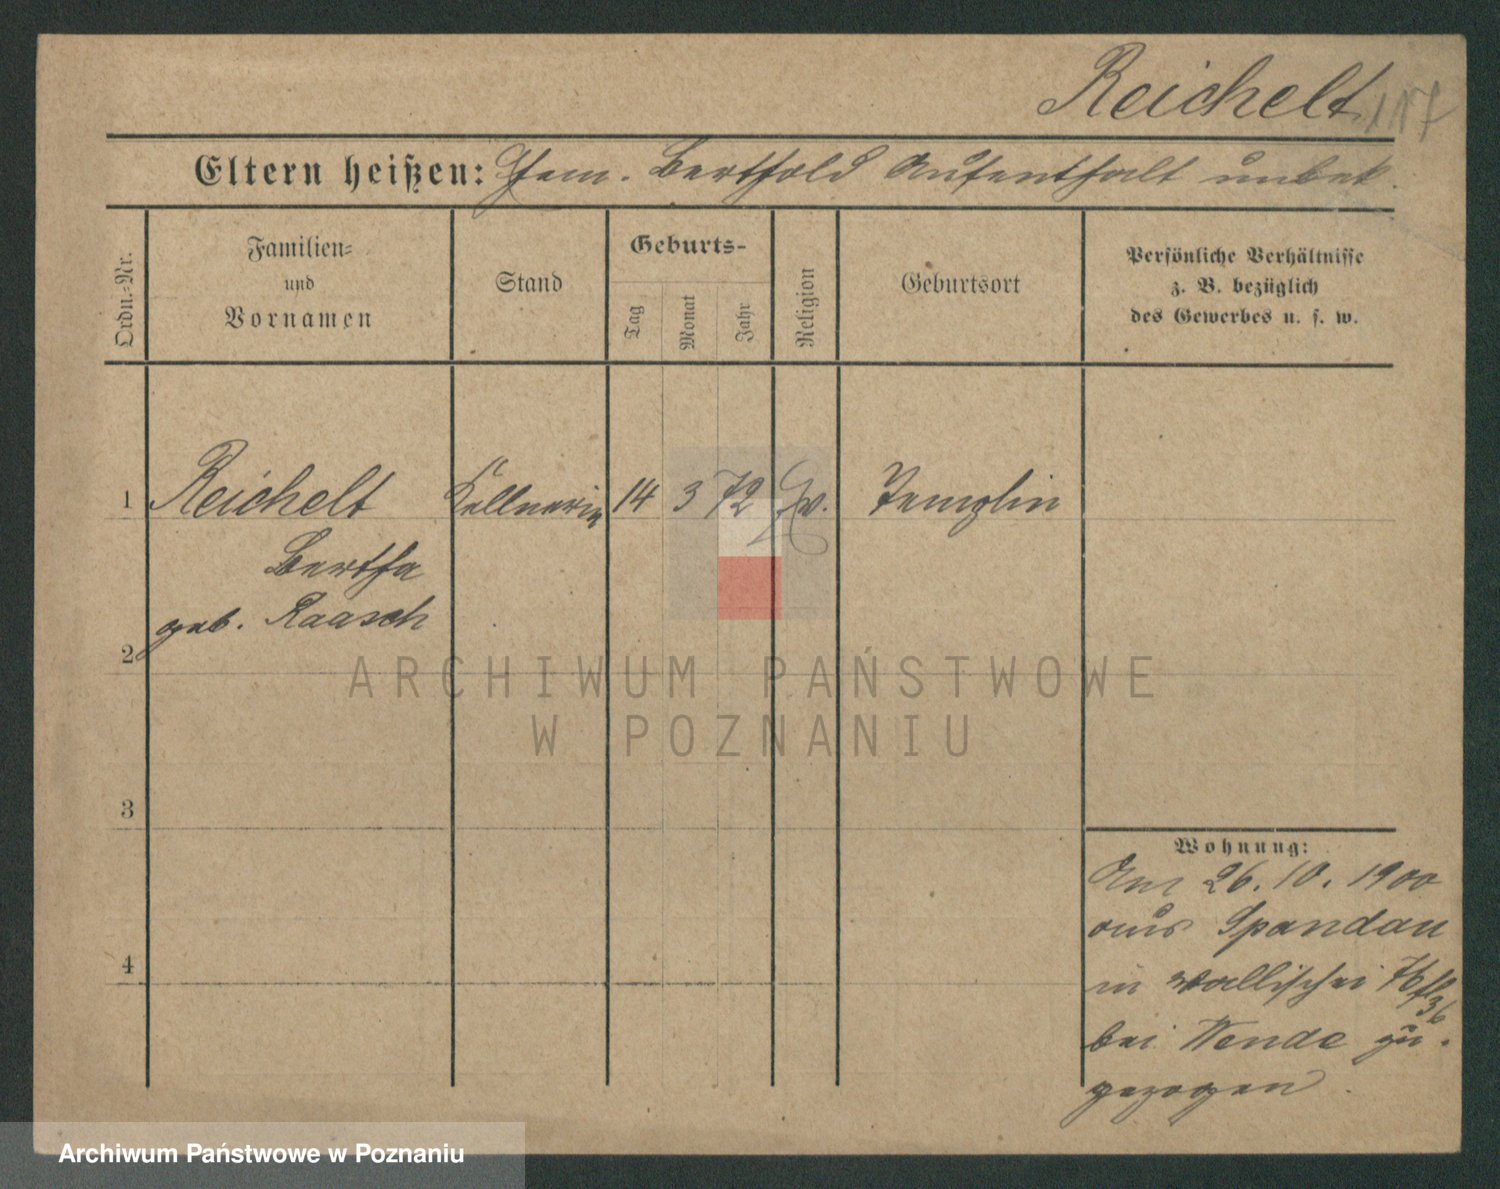 Reichelt 117
Eltern heißen: Ehem. Berthold Aufenthalt unbek.
Ordn.-Nr.
Familien-
und
Vornamen
Stand
Geburts-
Tag
Monat
Jahr
Religion
Geburtsort
Persönliche Verhältnisse
z. B. bezüglich
des Gewerbes u. s. w.
1 Reichelt Kellnerin 14 3 72 Ev. Templin
Bertha
geb. Raasch
2
3
4
Wohnung:
Am 26.10.1900
aus Spandau
in Wallischei 76/36
bei Wende zu-
gezogen.
ARCHIWUM PAŃSTWOWE
W POZNANIU
Archiwum Państwowe w Poznaniu